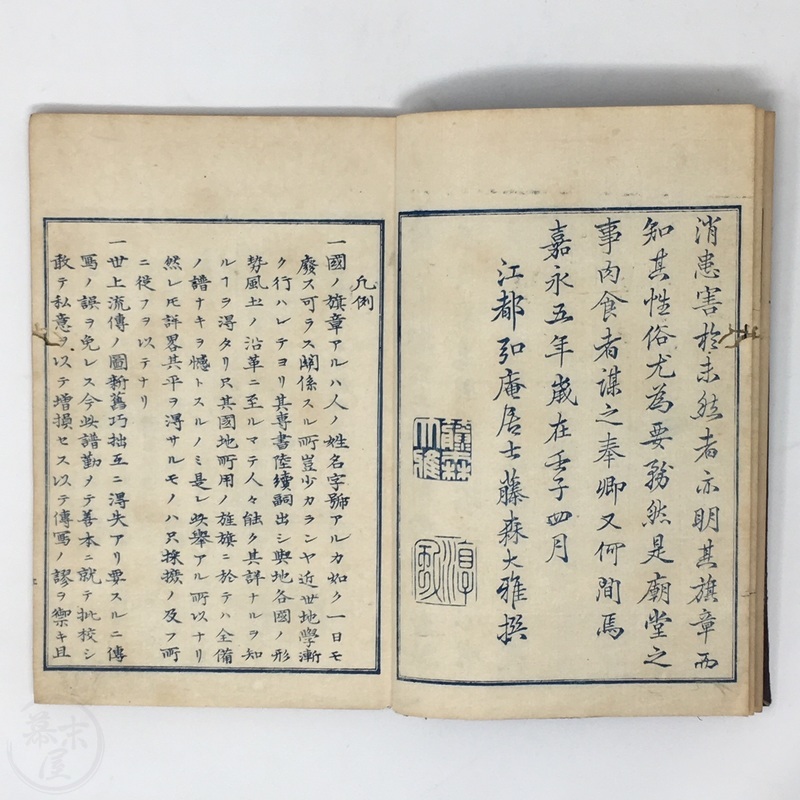 消患害於未然者亦明其旗章而
知其性俗尤為要務然是廟堂之
事肉食者謀之奉卿又何間焉
嘉永五年歳在壬子四月
江都弘庵居士藤森大雅撰
藤森大雅
淳風
凡例
一國ノ旗章アルハ人ノ姓名字號アルカ如ク一日モ
廢ス可ラス關係スル所豈少カランヤ近世地學漸
ク行ハレテヨリ其專書陸續詞出シ輿地各國ノ形
勢風土ノ沿革ニ至ルマテ人々能ク其詳ナルヲ知
ルヿヲ得タリ只其國地所用ノ旌旗ニ於テハ全備
ノ譜ナキヲ憾トスルノミ是レ此舉アル所以ナリ
然レモ評畧其平ヲ得サルモノハ只採摭ノ及フ所
ニ從フヲ以テナリ
一世上流傳ノ圖新舊巧拙互ニ得失アリ要スルニ傳
寫ノ誤ヲ免レス今此譜勤メテ善本ニ就テ批校シ
敢テ私意ヲ以テ増損セス以テ傳寫ノ謬ヲ禦キ且
幕末屋